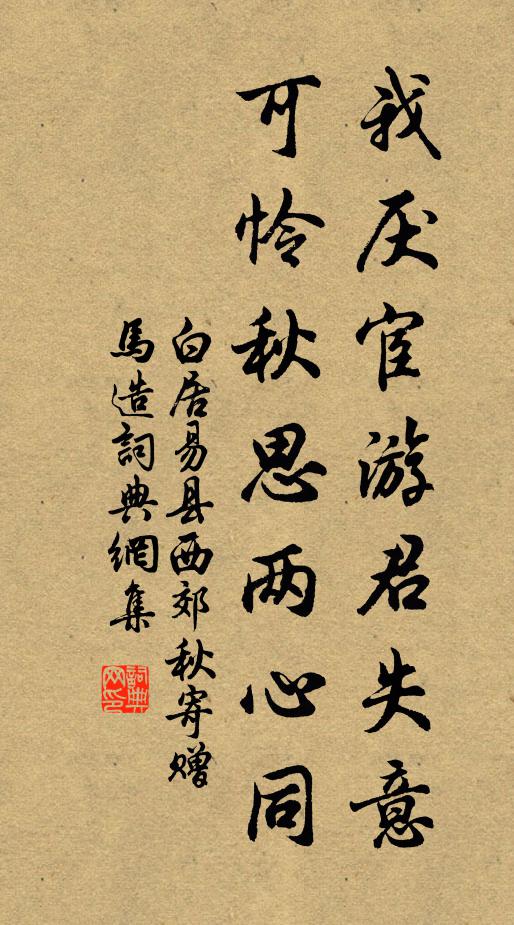 我厌宦游君失意
可怜秋思两心同
白居易县西郊秋寄赠
馬造詞典網集
詞典网印